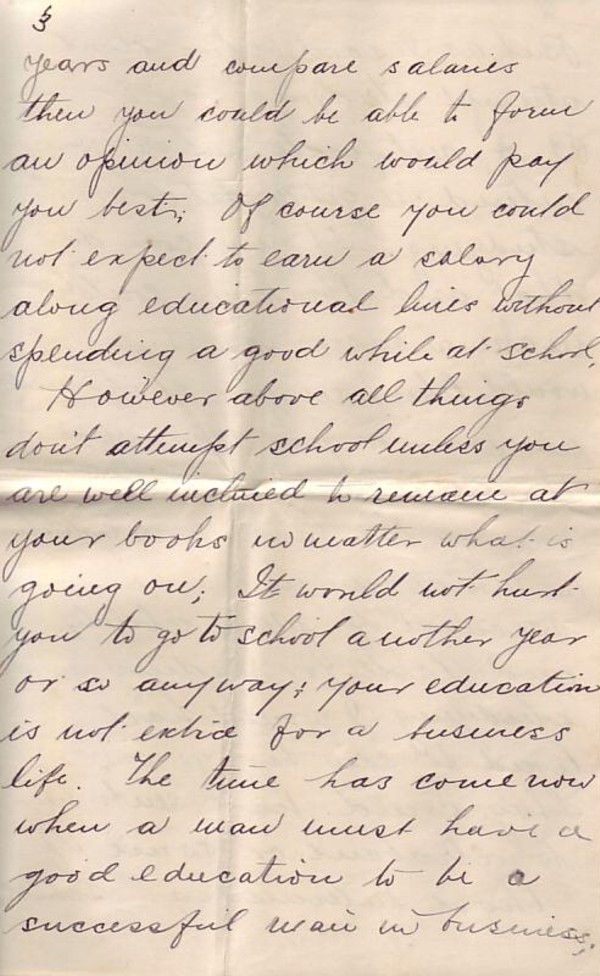 3
years and compare salaries
then you could be able to form
an opinion which would pay
you best; Of course you could
not expect to earn a salary
along educational lines without
spending a good while at school,
However above all things
don't attempt school unless you
are well inclined to remain at
your books no matter what is
going on; It would not hurt
you to go to school another year
or so anyway; your education
is not extra for a business
life. The time has come now
when a man must have a
good education to be a
successful man in business;